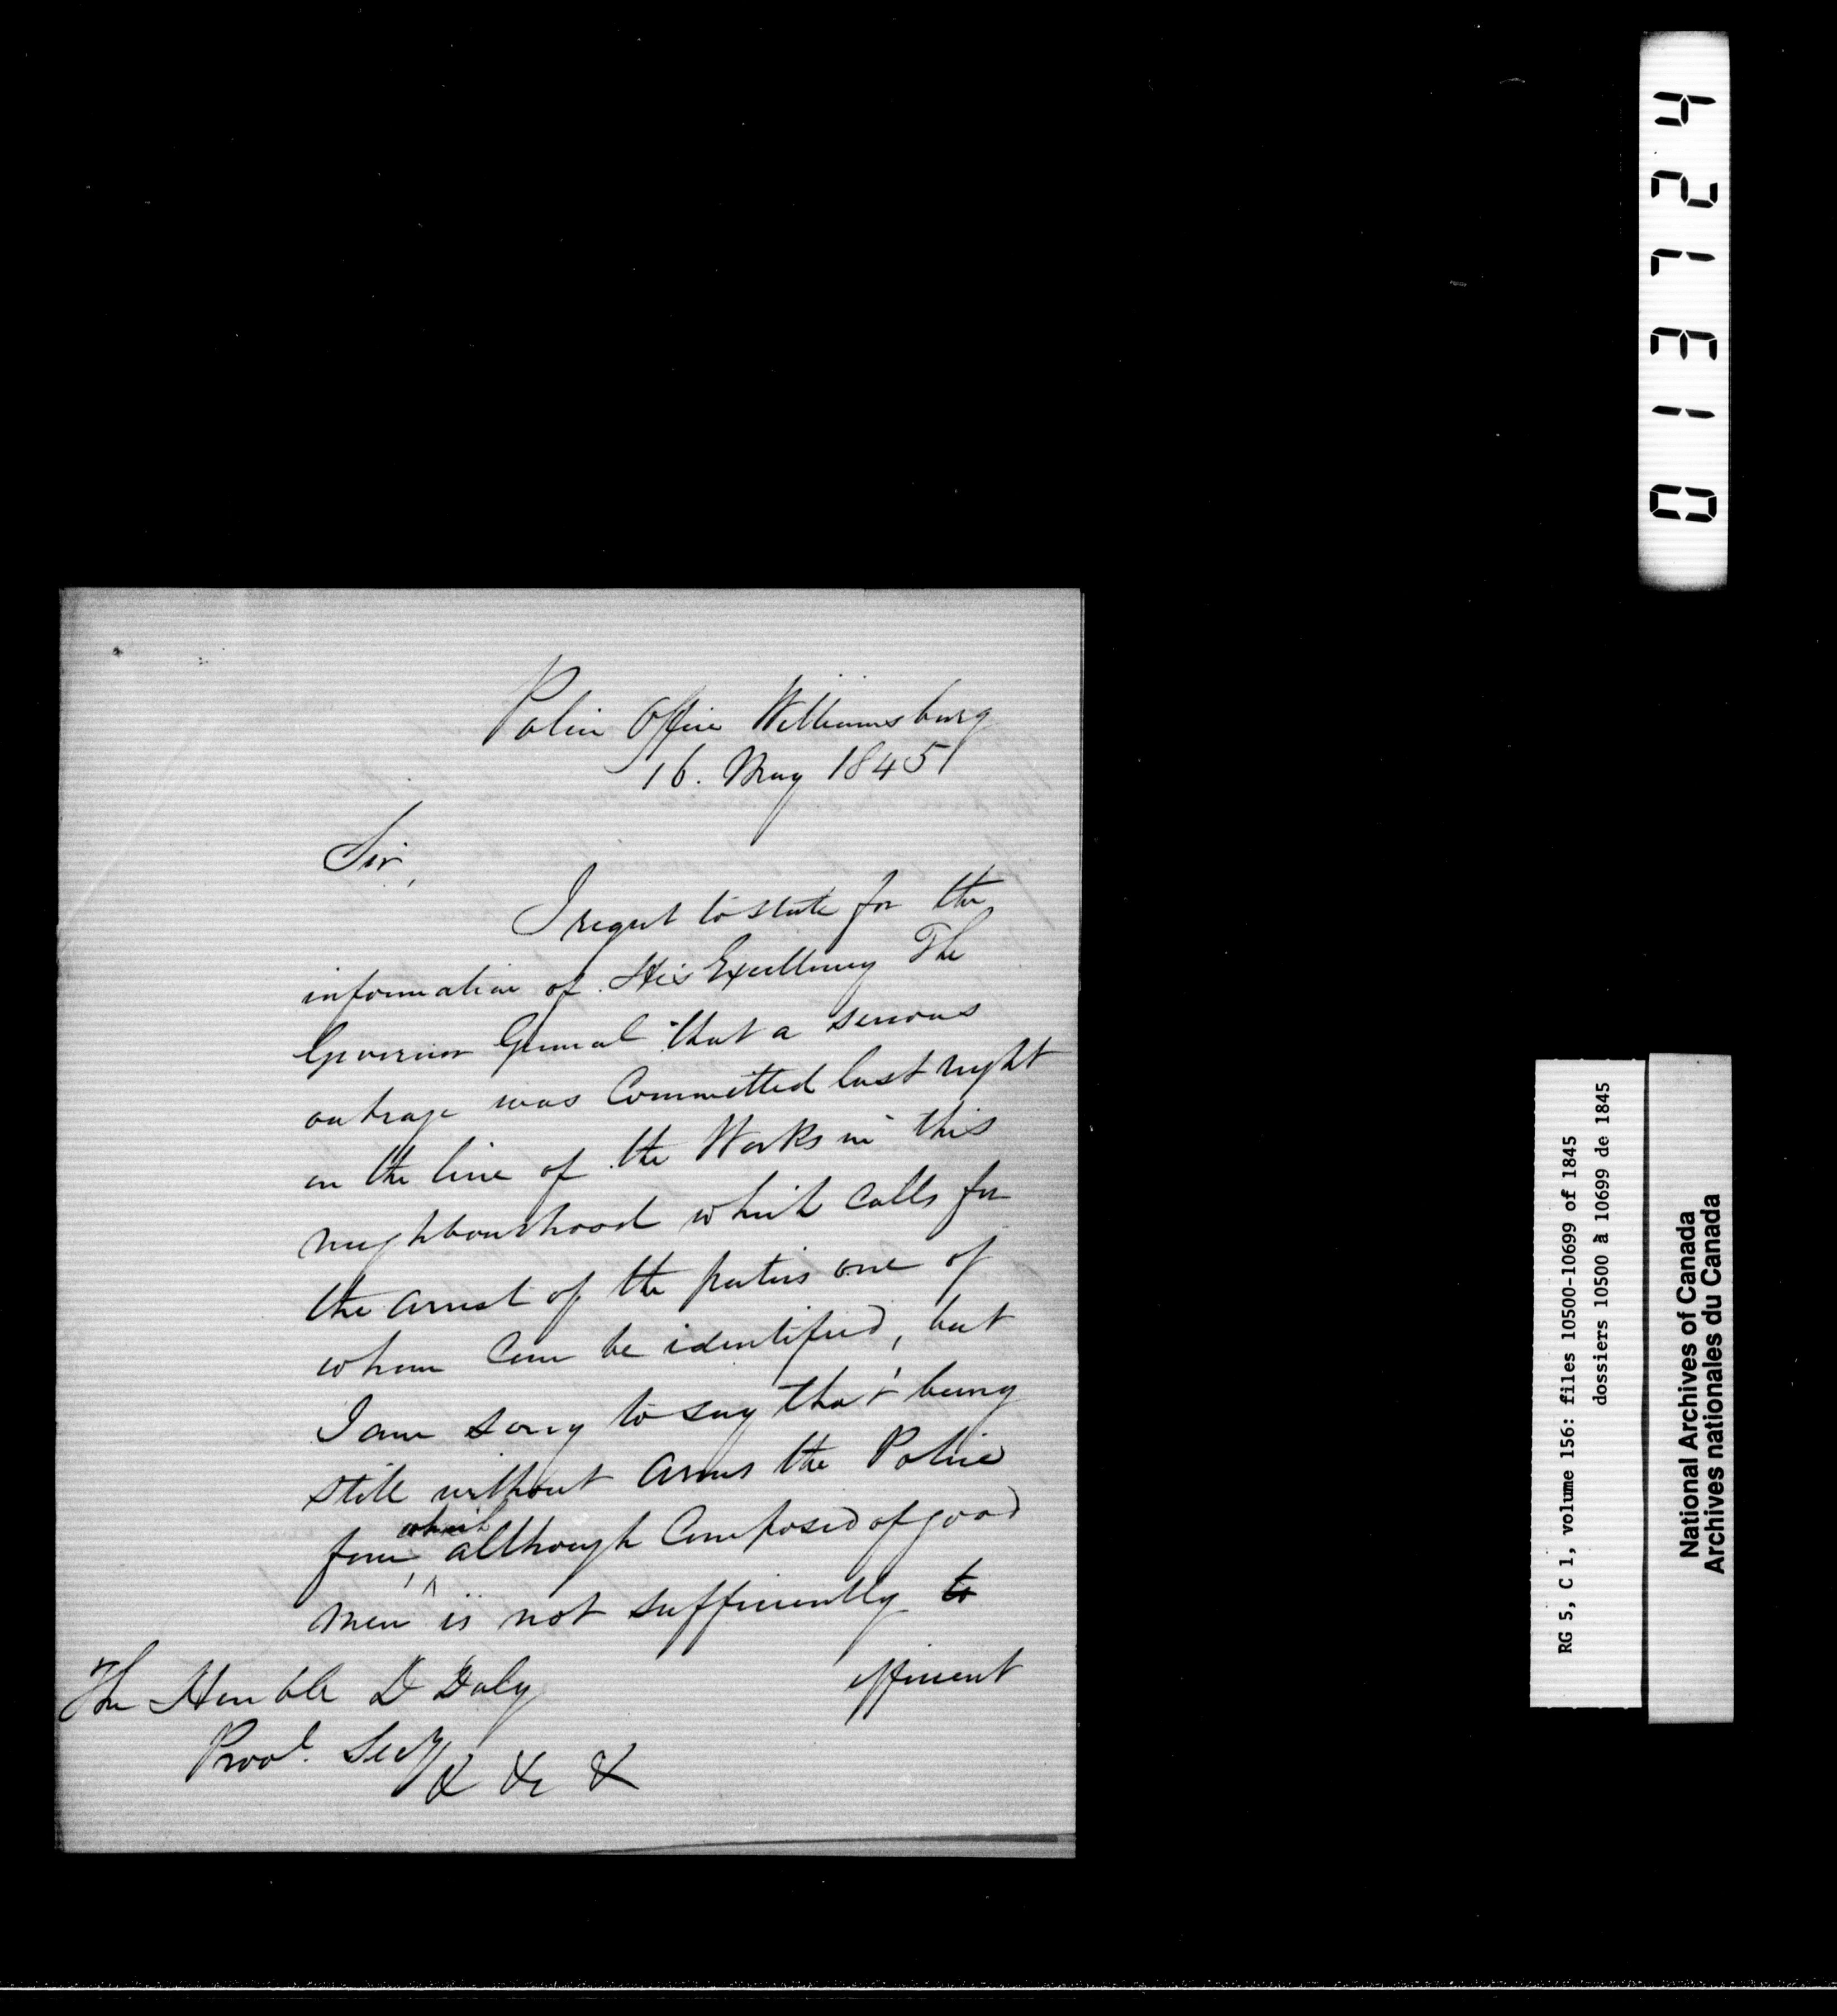 Police Office Williamsburg
16. May 1845
Sir,
I regret to state for the
information of His Excellency The
Governor General that a serious
outrage was Committed last night
on the line of the Works in this
neighbourhood which Calls for
the arrest of the parties one of
whom Can be identified, but
I am sorry to say that being
still without Arms the Police
force, which although Composed of good
men is not sufficiently to
efficient
The Honble D Daly
Provl. Secy
& &c &
013724
RG 5, C 1, volume 156: files 10500-10699 of 1845
dossiers 10500 à 10699 de 1845
National Archives of Canada
Archives nationales du Canada